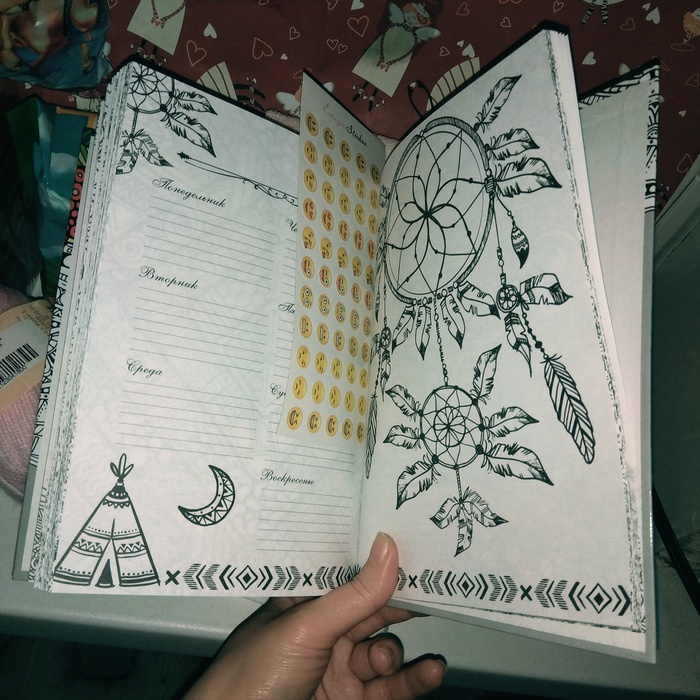 Понедельник
Вторник
Среда
Че
Пя
Су
Воскресенье
Stickers